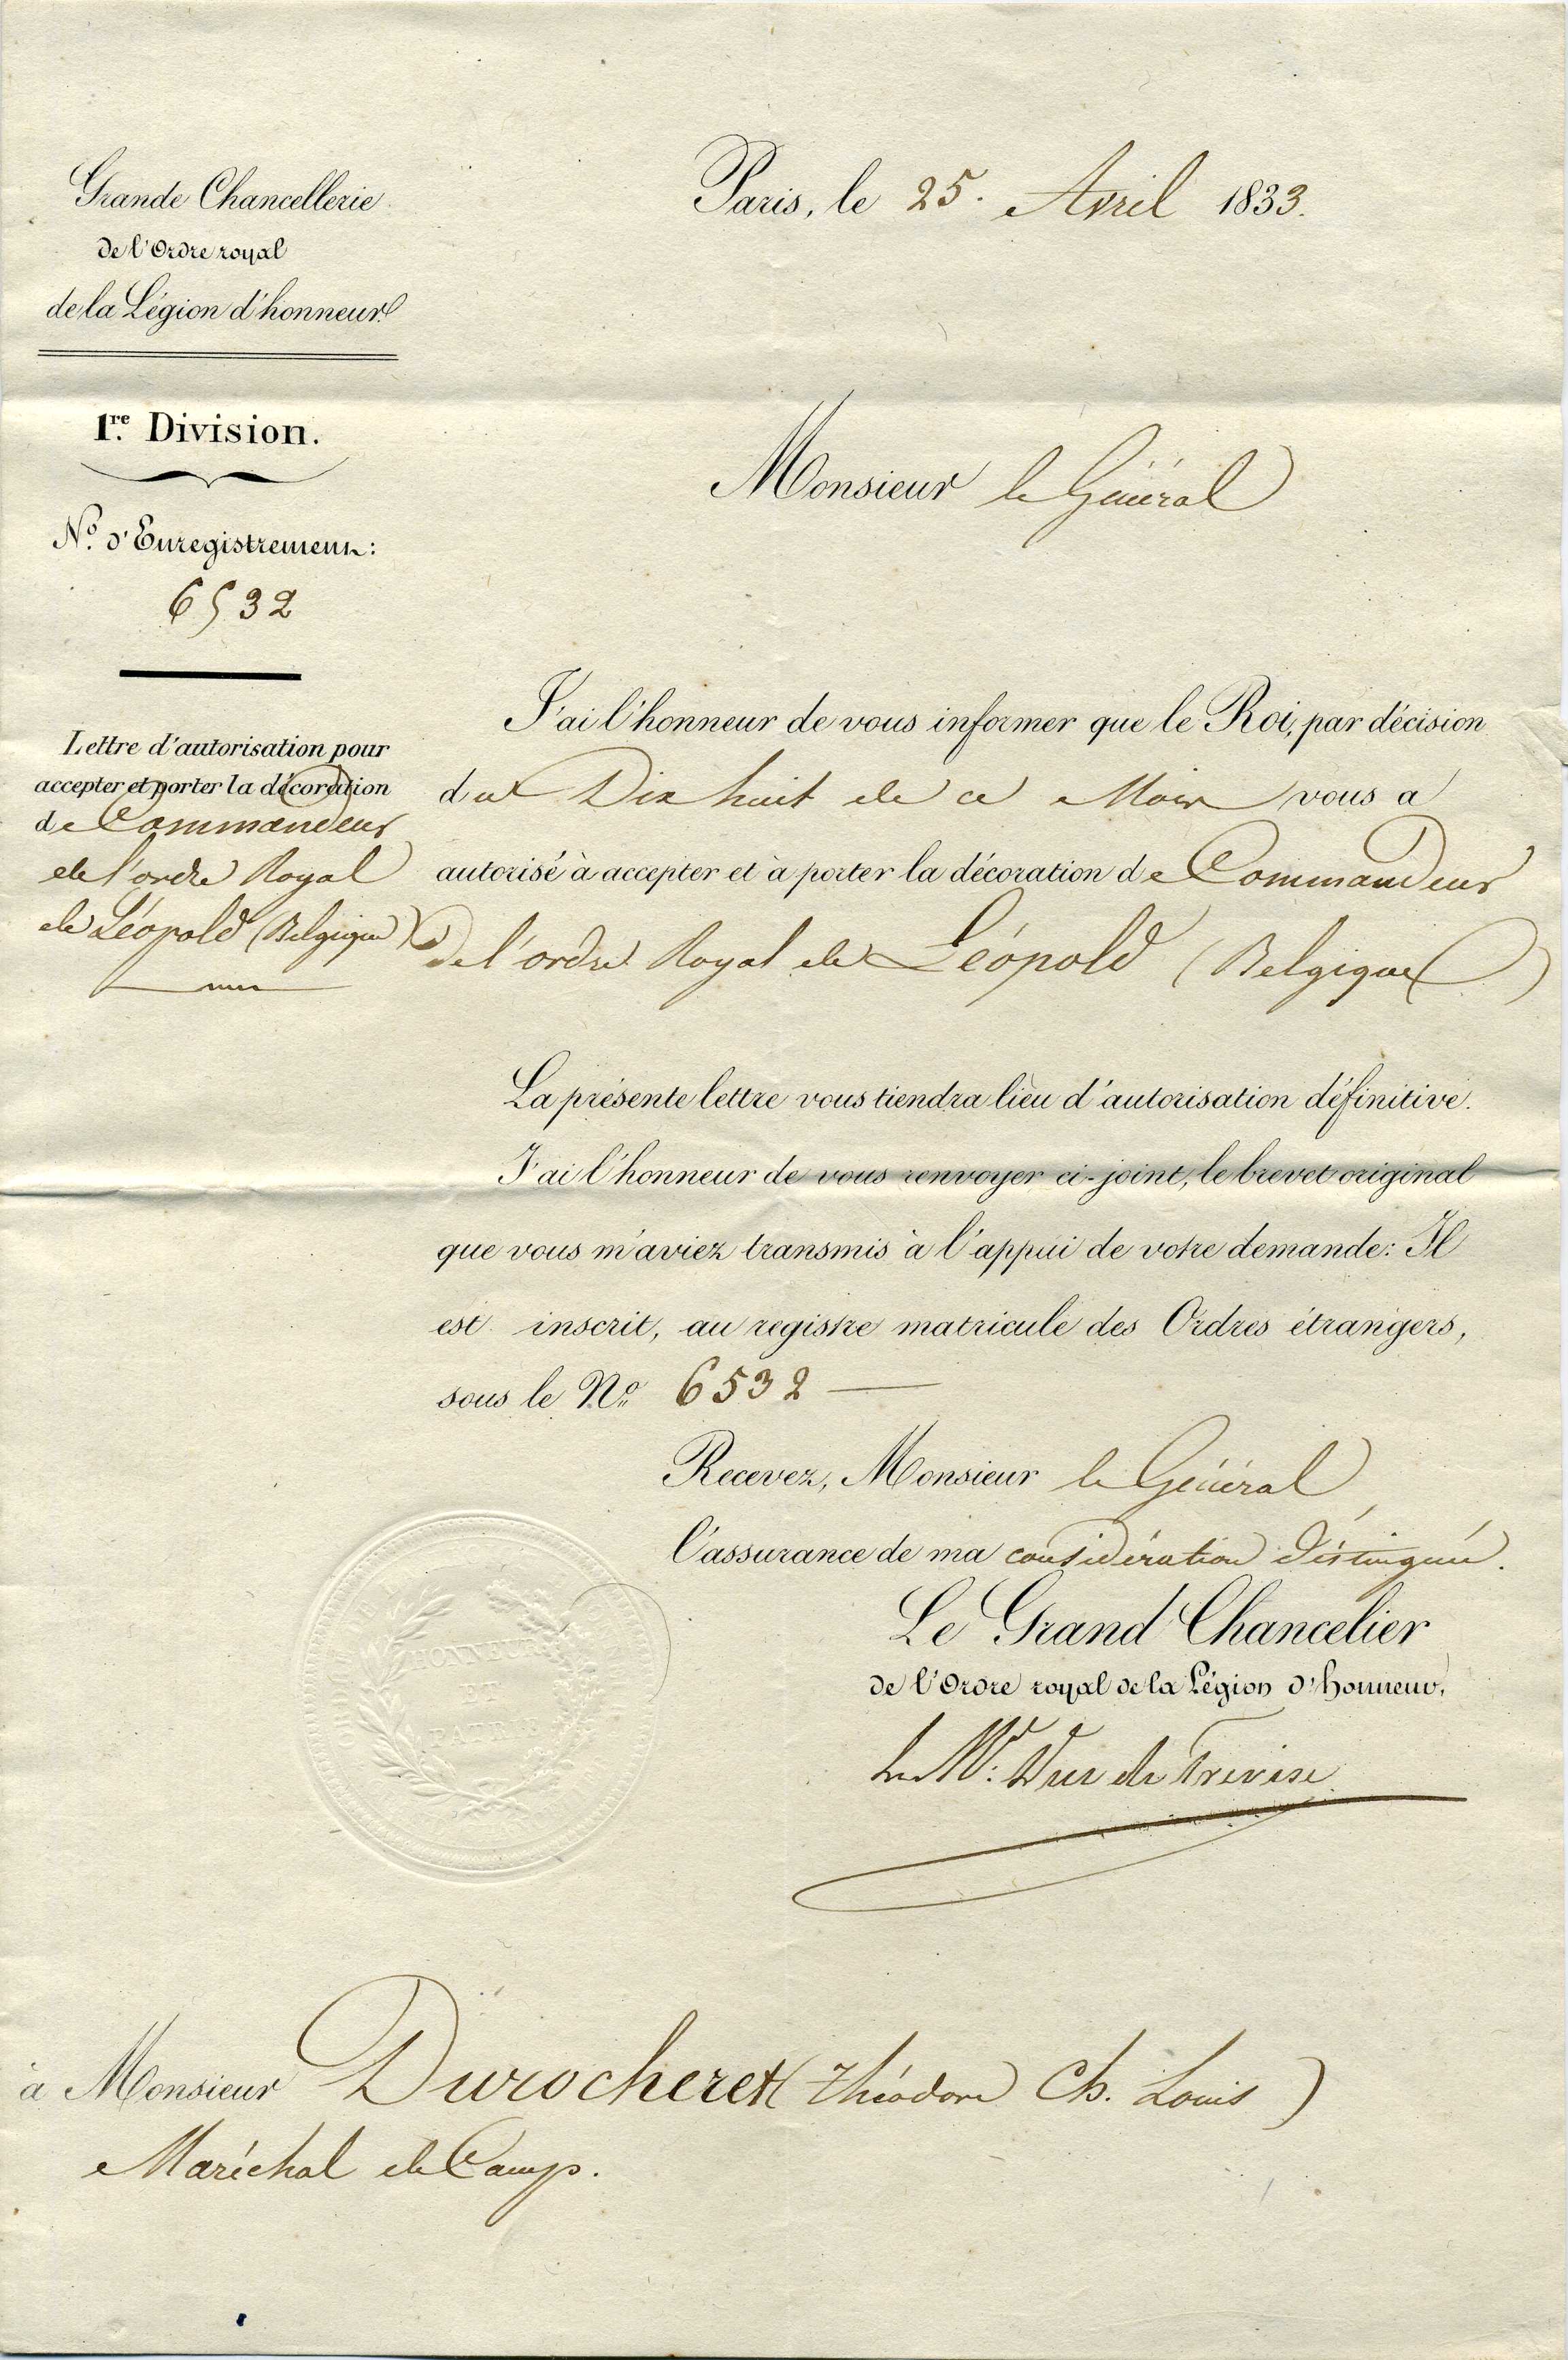 Grande Chancellerie
de l'Ordre royal
de la Légion d'honneur.
1.re Division.
N.o d'Enregistrement:
6532
Lettre d'autorisation pour
accepter et porter la décoration
de Commandeur
de l'ordre Royal
de Léopold (Belgique)
Paris, le 25. Avril 1833.
Monsieur le Général
J'ai l'honneur de vous informer que le Roi, par décision
du Dix huit de ce Mois vous a
autorisé à accepter et à porter la décoration de Commandeur
de l'ordre Royal de Léopold (Belgique)
La présente lettre vous tiendra lieu d'autorisation définitive.
J'ai l'honneur de vous renvoyer ci-joint, le brevet original
que vous m'aviez transmis à l'appui de votre demande: Il
est inscrit, au registre matricule des Ordres étrangers,
sous le No. 6532 —
Recevez, Monsieur le Général,
l'assurance de ma considération distinguée.
Le Grand Chancelier
de l'Ordre royal de la Légion d'honneur,
Le Mal. Duc de Trévise
HONNEUR
ET
PATRIE
à Monsieur Durocheret (Théodore Ch. Louis)
Maréchal de Camp.